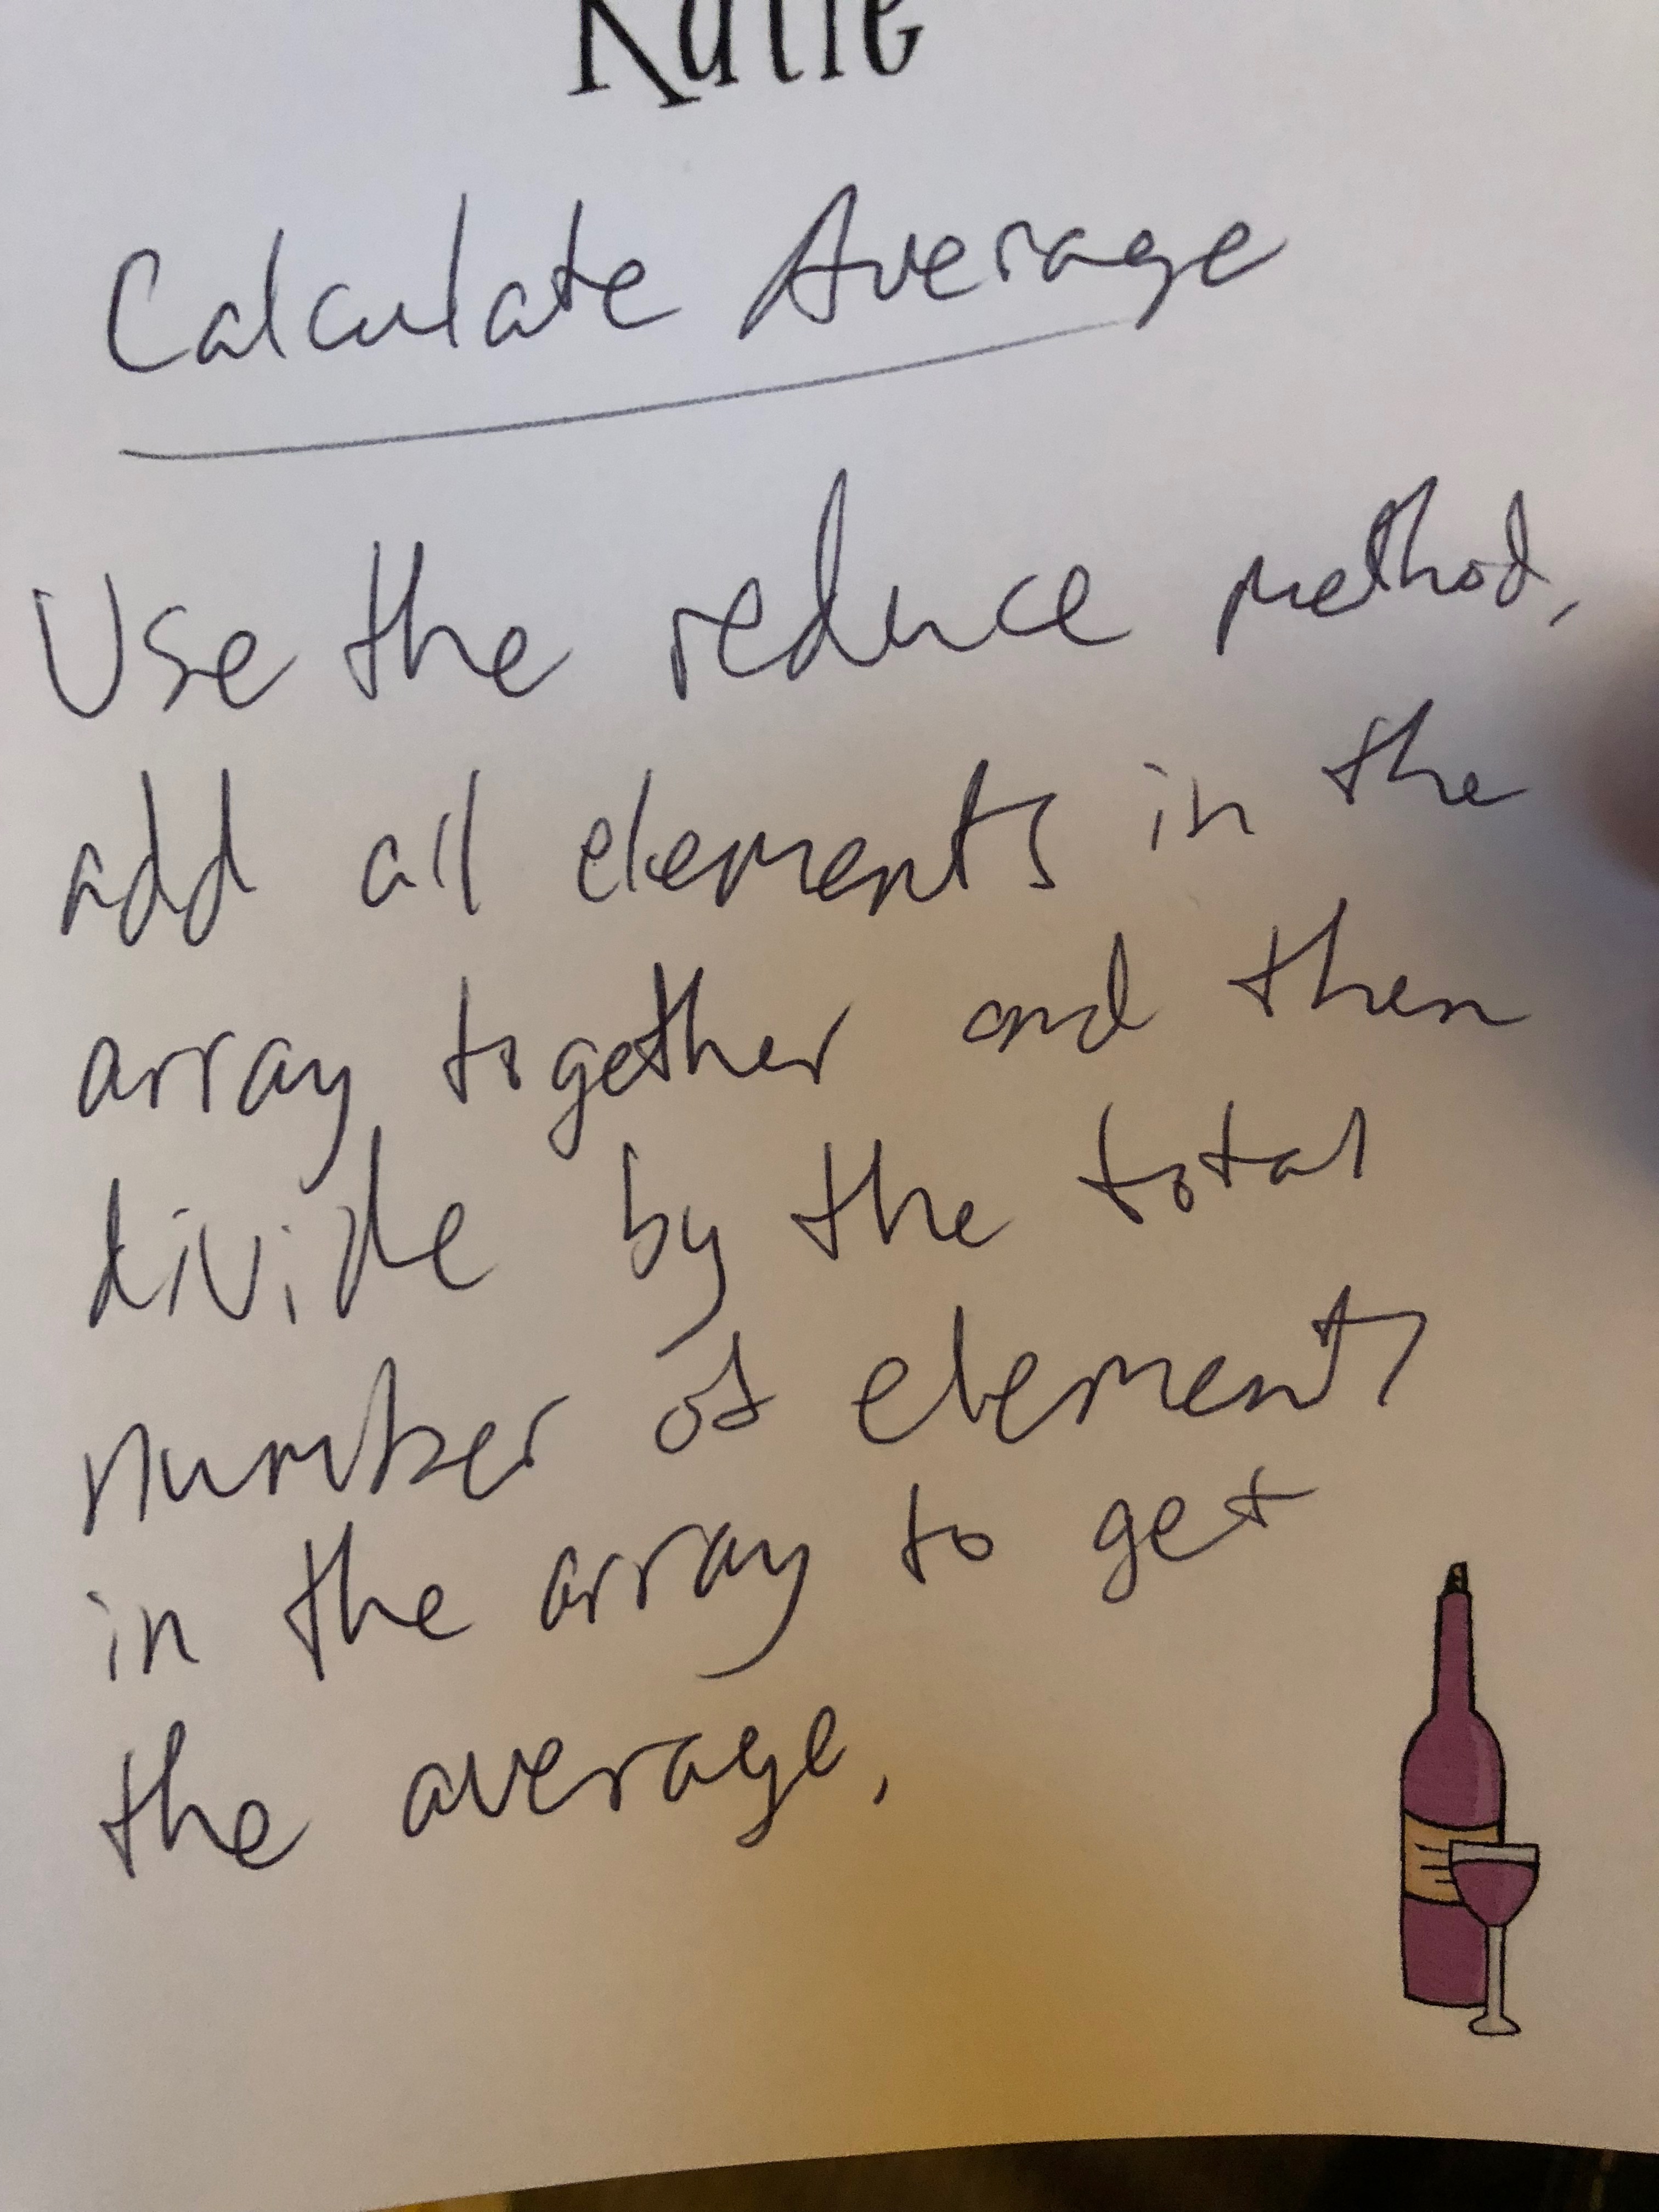 Katie
Calculate Average
Use the reduce method,
add all elements in the
array together and then
divide by the total
number of elements
in the array to get
the average.